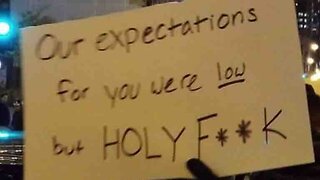 Our expectations
for you were low
but HOLY F**K